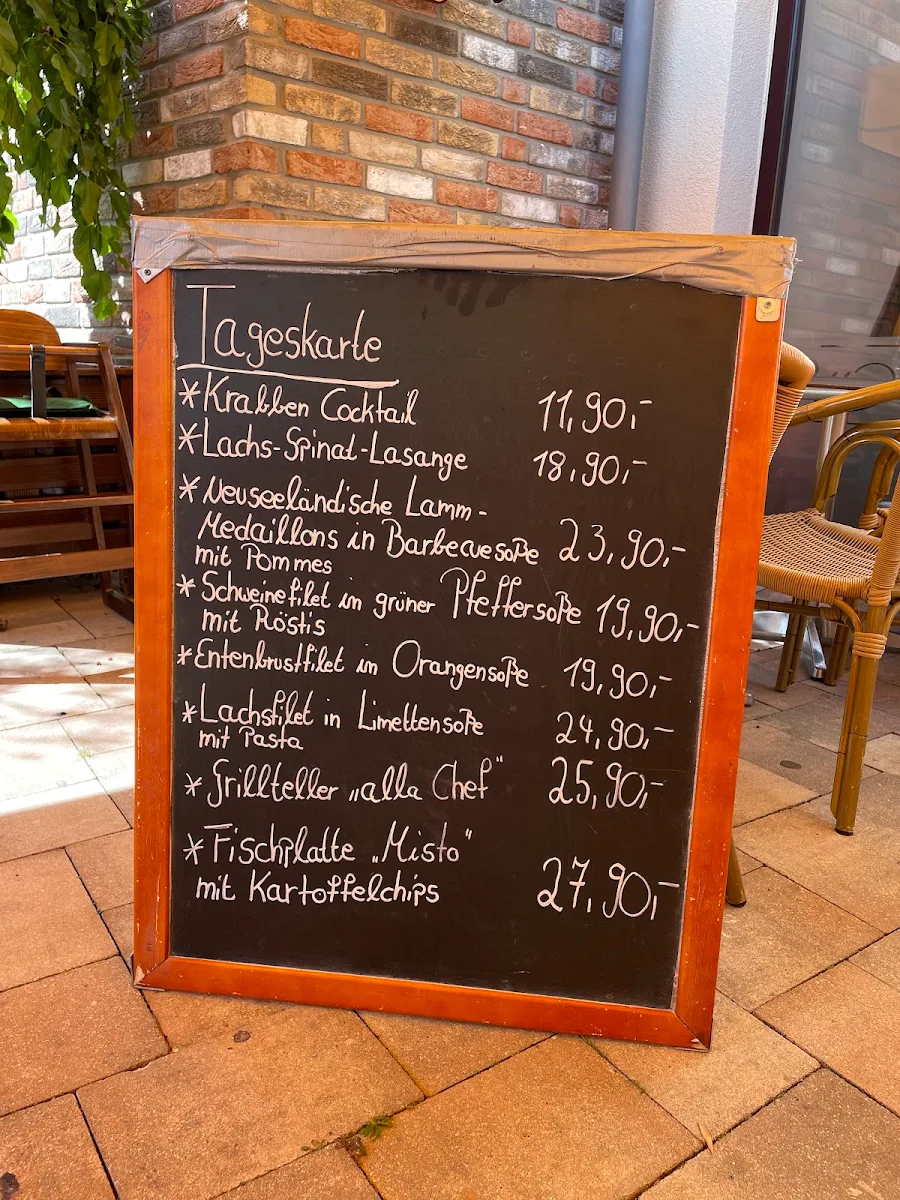 Tageskarte
*Krabben Cocktail 11,90,-
*Lachs-Spinat-Lasange 18,90,-
*Neuseeländische Lamm-
Medaillons in Barbecuesoße 23,90,-
mit Pommes
*Schweinefilet in grüner Pfeffersoße 19,90,-
mit Röstis
*Entenbrustfilet in Orangensoße 19,90,-
*Lachsfilet in Limettensoße 24,90,-
mit Pasta
*Grillteller „alla Chef" 25,90,-
*Fischplatte „Misto"
mit Kartoffelchips 27,90,-